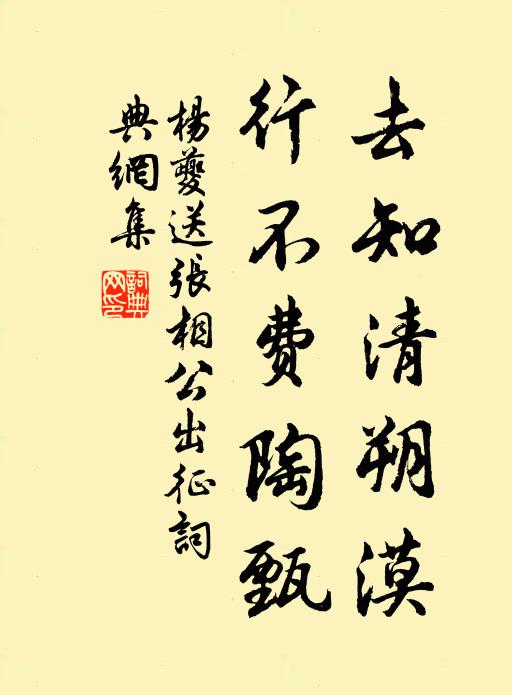 去知清朔漠
行不费陶甄
楊夔送張相公出征詞
典網集
詞典網印